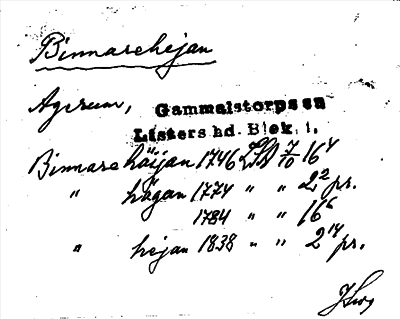 Binnarehejan
Agerum, Gammalstorps sn
Listers hd. Blek. l.
Binnare höijan 1746 LSA 7/10 16⁴
" högan 1774 " " 2² pr.
1784 " " 16⁶
" hejan 1838 " " 2¹⁴ pr.